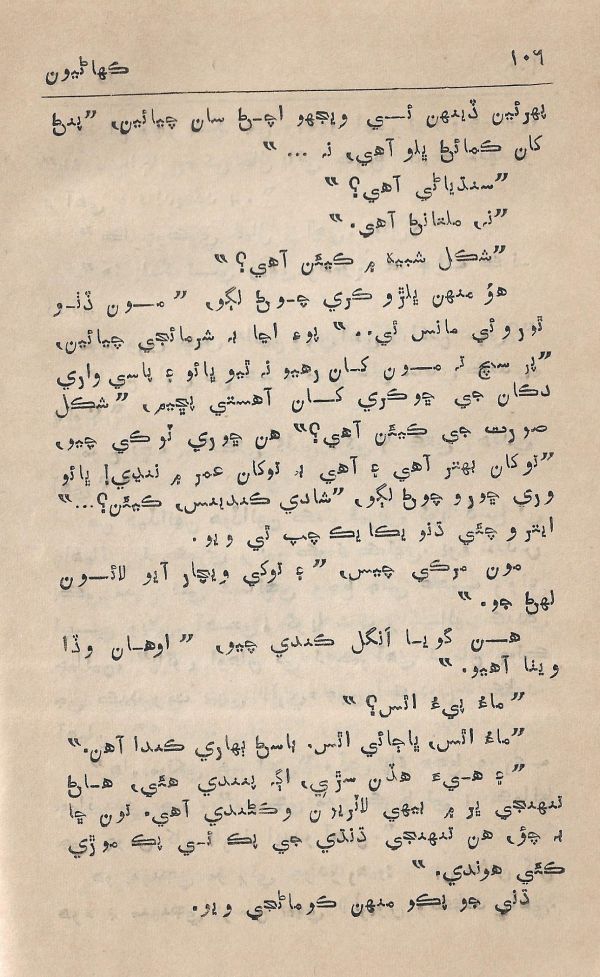 ۱۰۶
ڪهاڻيون
پهرئين ڏينهن ئي ويجهو اچڻ سان چيائين، ”پنڻ
کان ڪمائڻ ڀلو آهي، نہ ... “
”سنڌياڻي آهي؟ “
”نہ، ملتانڻ آهي. “
”شڪل شبيهہ ۾ ڪيئن آهي؟ “
هؤ منهن ڀلڙو ڪري چوڻ لڳو، ” مون ڏٺو
ٿوروئي مانس ئي.. “ پوءِ اڃا بہ شرمائجي چيائين،
”پر سچ تہ مون کان رهيو نہ ٿيو ڀائو ۽ پاسي واري
دڪان جي ڇوڪري کان آهستي پڇيم، ”شڪل
صورت جي ڪيئن آهي؟“ هن ڇوري ٽوڪي چيو،
”توکان بهتر آهي ۽ آهي بہ توکان عمر ۾ ننڍي! ڀائو
وري ڇورو چوڻ لڳو، ”شادي ڪندينس، ڪيئن؟...“
ايترو چئي ڏٺو يڪايڪ چپ ٿي ويو.
مون مرڪي چيس، ” ۽ توکي ويچار آيو لائون
لهڻ جو. “
هن گويا آنگل ڪندي چيو، ” اوهان وڏا
ويٺا آهيو. “
”ماءُ پيءُ اٿس؟ “
”ماءُ اٿس، ڀاڄائي اٿس. باسڻ ٻهاري ڪندا آهن.“
”۽ هيءَ هڏن سڙي، اڳہ پنندي هئي، هاڻ
تنهنجي ڀر ۾ بيهي لاٽريون وڪڻندي آهي. تون ڇا
بہ چؤ، هن تنهنجي ڌنڌي جي پڪ ئي پڪ موڙي
کڻي هوندي. “
ڏٺي جو پڪو منهن ڪومائجي ويو.